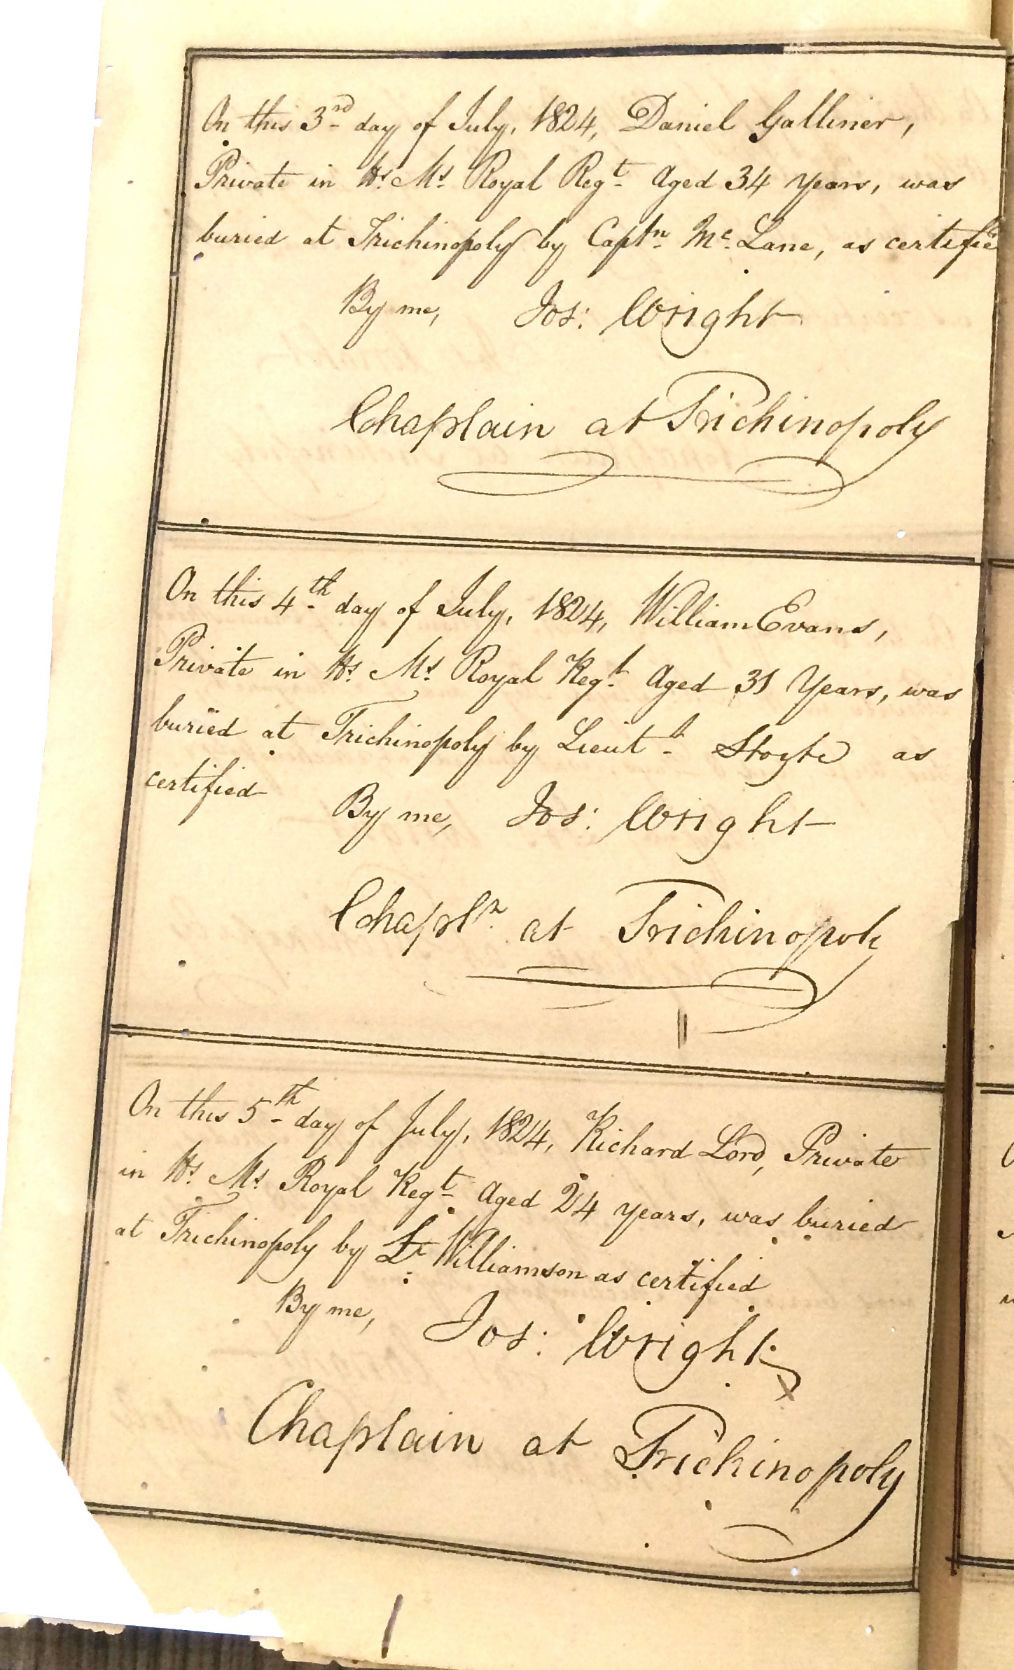 On this 3rd day of July, 1824, Daniel Galliner,
Private in Hs. Ms. Royal Regt. Aged 34 Years, was
buried at Trichinopoly by Captn. Mc. Lane, as certifie
By me, Jos: Wright
Chaplain at Trichinopoly
On this 4th day of July, 1824, William Evans,
Private in Hs. Ms. Royal Regt. Aged 31 Years, was
buried at Trichinopoly by Lieut. as
certified
By me, Jos: Wright
Chapln. at Trichinopoly
On this 5th day of July, 1824, Richard Lord, Private
in Hs. Ms. Royal Regt. Aged 24 years, was buried
at Trichinopoly by Lt. Williamson as certified
By me, Jos: Wright
Chaplain at Trichinopoly